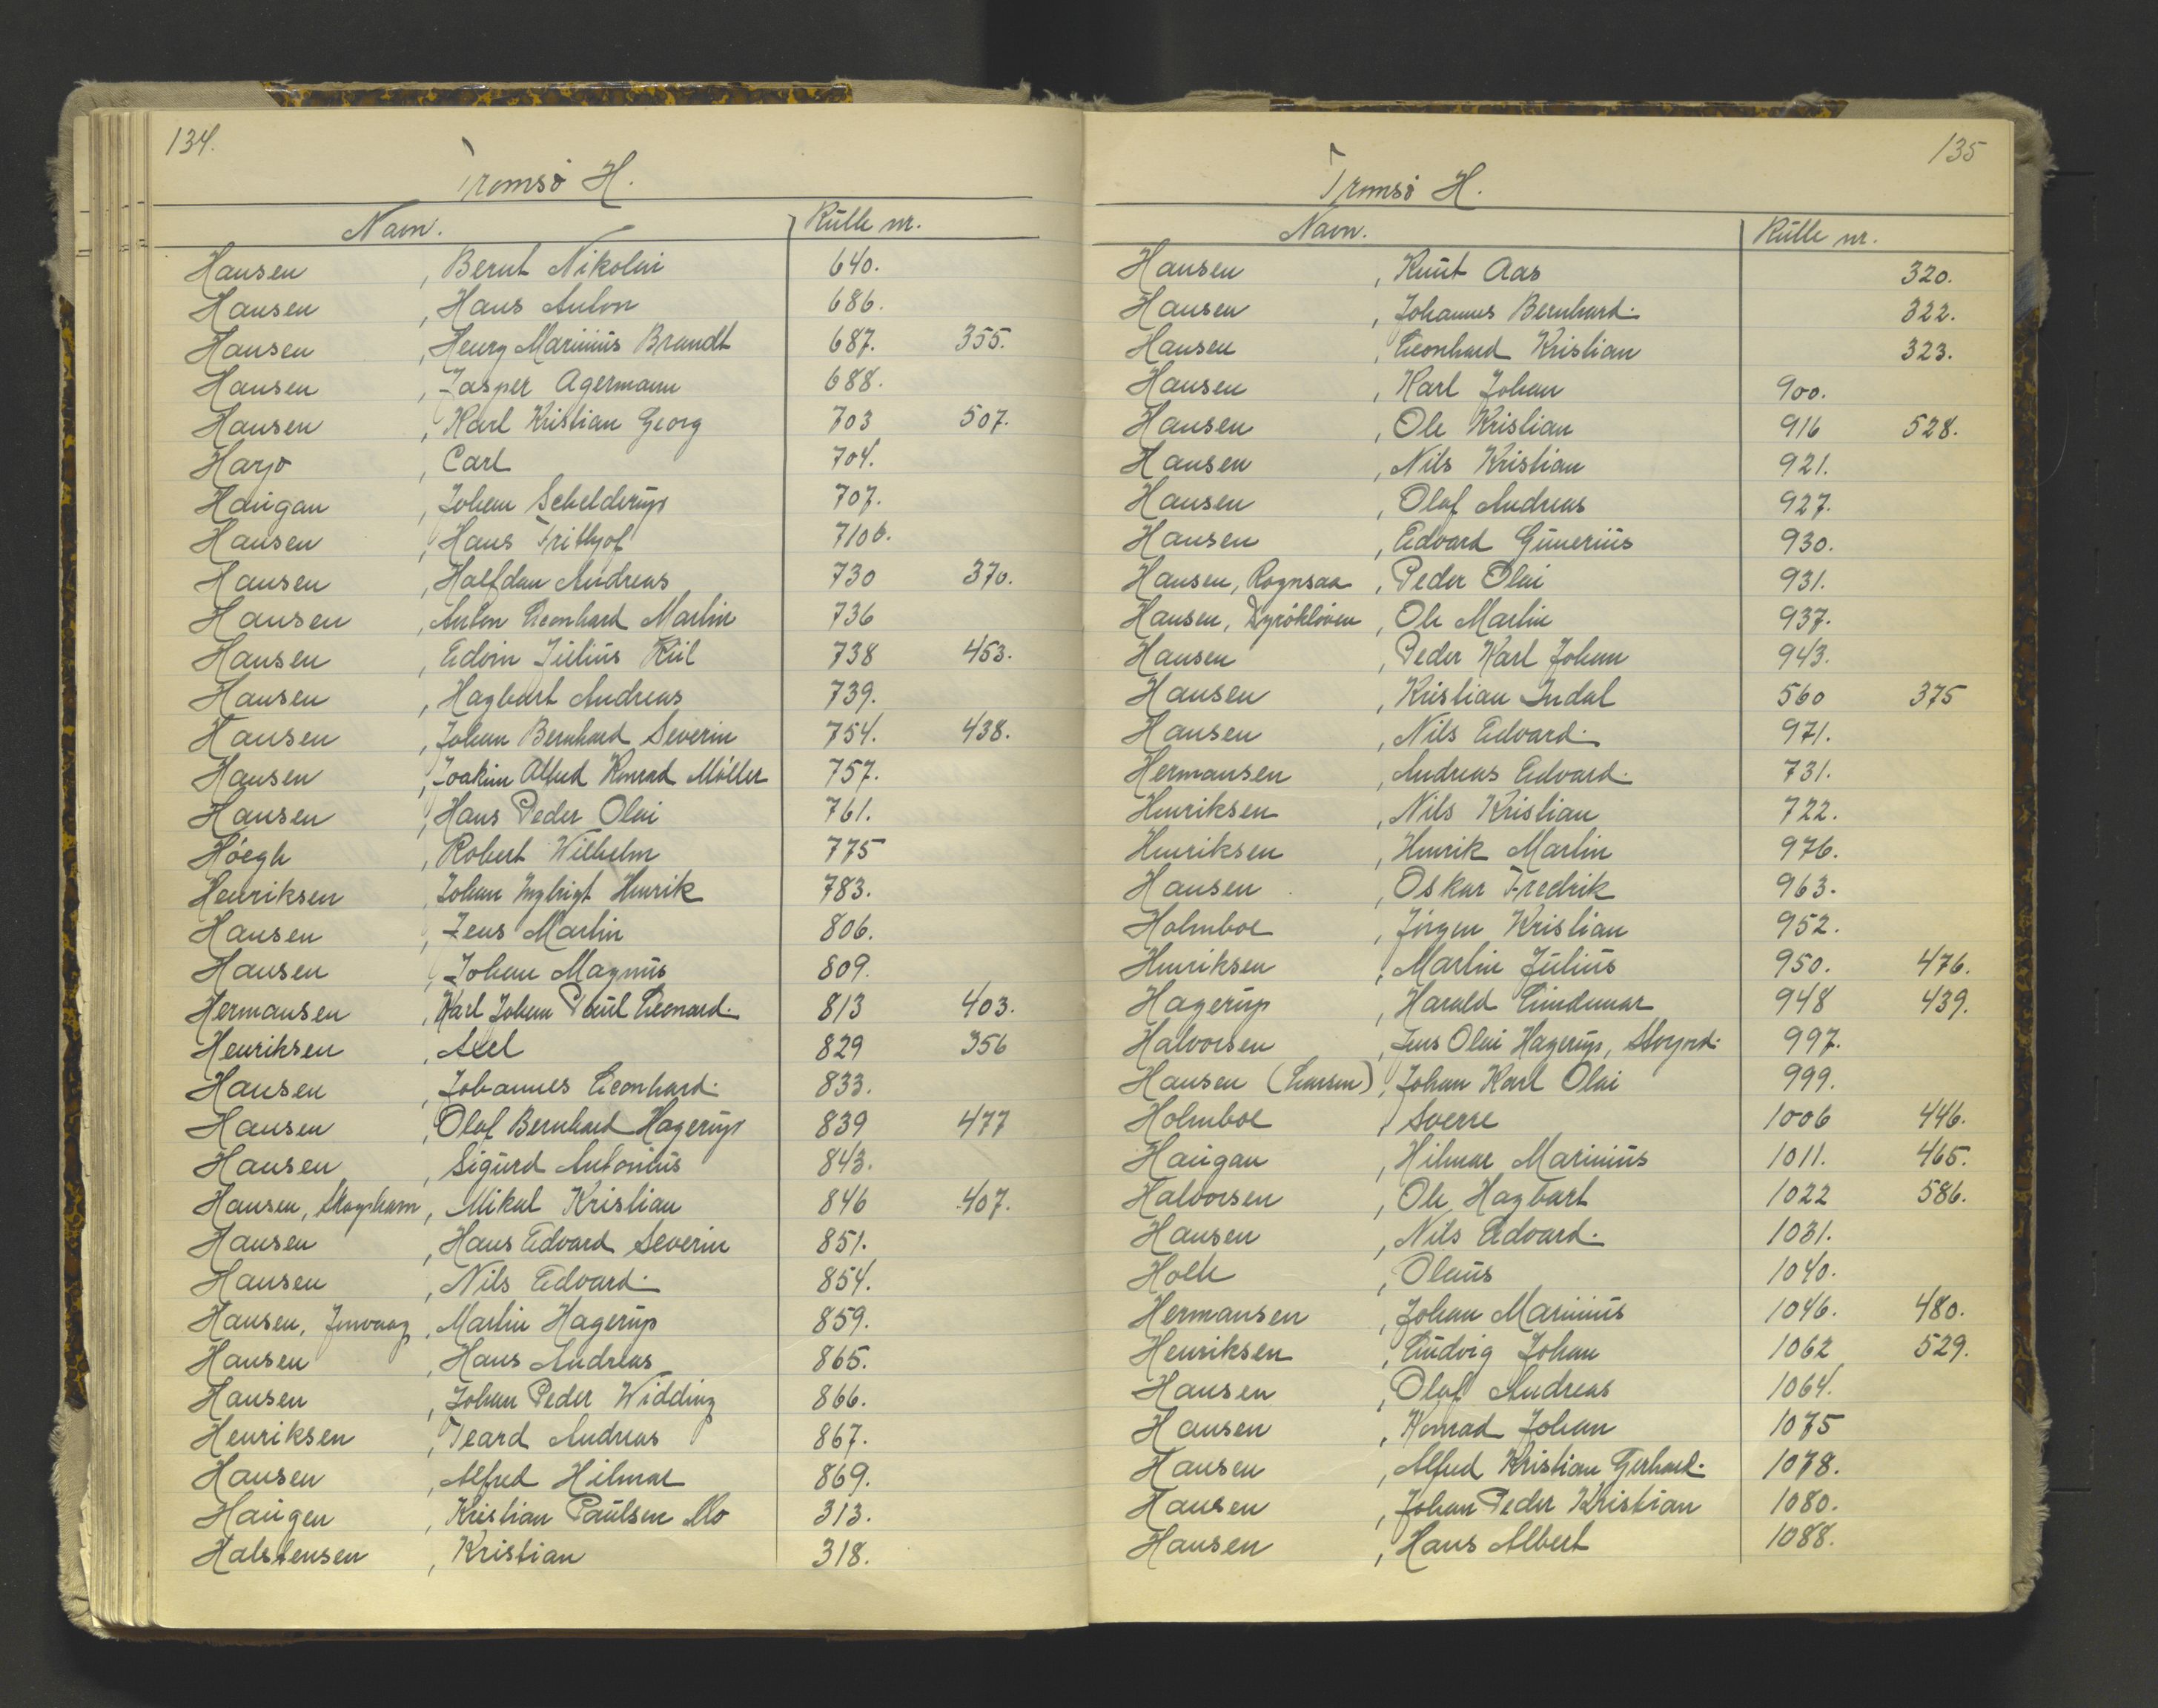 134.
Tromsö H.
Navn. Rulle nr.
Hansen , Bernt Nikolai 640.
Hansen , Hans Anton 686.
Hansen , Henry Marinius Brandt 687. 355.
Hansen , Jasper Agermann 688.
Hansen , Karl Kristian Georg 703 507.
Harjo , Carl 704.
Haugan , Johan Schelderup 707.
Hansen , Hans Frithjof 7106.
Hansen , Halfdan Andreas 730 370.
Hansen , Anton Leonhard Martin 736
Hansen , Edvin Julius Kiil 738 453.
Hansen , Hagbart Andreas 739.
Hansen , Johan Bernhard Severin 754. 438.
Hansen , Joakim Alfred Konrad Möller 757.
Hansen , Hans Peder Olai 761.
Höegh , Robert Wilhelm 775
Henriksen , Johan Ingbrigt Henrik 783.
Hansen , Jens Martin 806.
Hansen , Johan Magnus 809.
Hermansen , Karl Johan Paul Leonard. 813 403.
Henriksen , Axel 829 356
Hansen , Johannes Leonhard. 833.
Hansen , Olaf Bernhard Hagerup 839 477
Hansen , Sigurd Antonius 843.
Hansen, , Mikal Kristian 846 407.
Hansen , Hans Edvard Severin 851.
Hansen , Nils Edvard. 854.
Hansen, Jenvaag , Martin Hagerup 859.
Hansen , Hans Andreas 865.
Hansen , Johan Peder Widding 866.
Henriksen , Peard Andreas 867.
Hansen , Alfred Hilmar 869.
Haugen , Kristian Paulsen Mo 313.
Halstensen , Kristian 318.
135
Tromsö H.
Navn. Rulle nr.
Hansen , Knut Aas 320.
Hansen , Johannes Bernhard. 322.
Hansen , Leonhard Kristian 323.
Hansen , Karl Johan 900.
Hansen , Ole Kristian 916 528.
Hansen , Nils Kristian 921.
Hansen , Olaf Andreas 927.
Hansen , Edvard Gunerius 930.
Hansen, Rognsaa , Peder Olai 931.
Hansen, Dyröklöven , Ole Martin 937.
Hansen , Peder Karl Johan 943.
Hansen , Kristian Indal 560 375
Hansen , Nils Edvard. 971.
Hermansen , Andreas Edvard. 731.
Henriksen , Nils Kristian 722.
Henriksen , Henrik Martin 976.
Hansen , Oskar Fredrik 963.
Holmboe , Jörgen Kristian 952.
Henriksen , Martin Julius 950. 476.
Hagerup , Harald Lindemar 948 439.
Halvorsen , Jens Olai Hagerup, 997.
Hansen (Larsen) , Johan Karl Olai 999.
Holmboe , Sverre 1006 446.
Haugan , Hilmar Marinius 1011. 465.
Halvorsen , Ole Hagbart 1022 586.
Hansen , Nils Edvard. 1031.
Holte , Olaus 1040.
Hermansen , Johan Marinius 1046. 480.
Henriksen , Ludvig Johan 1062 529.
Hansen , Olaf Andreas 1064.
Hansen , Konrad Johan 1075
Hansen , Alfred Kristian Gerhard. 1078.
Hansen , Johan Peder Kristian 1080.
Hansen , Hans Albert 1088.